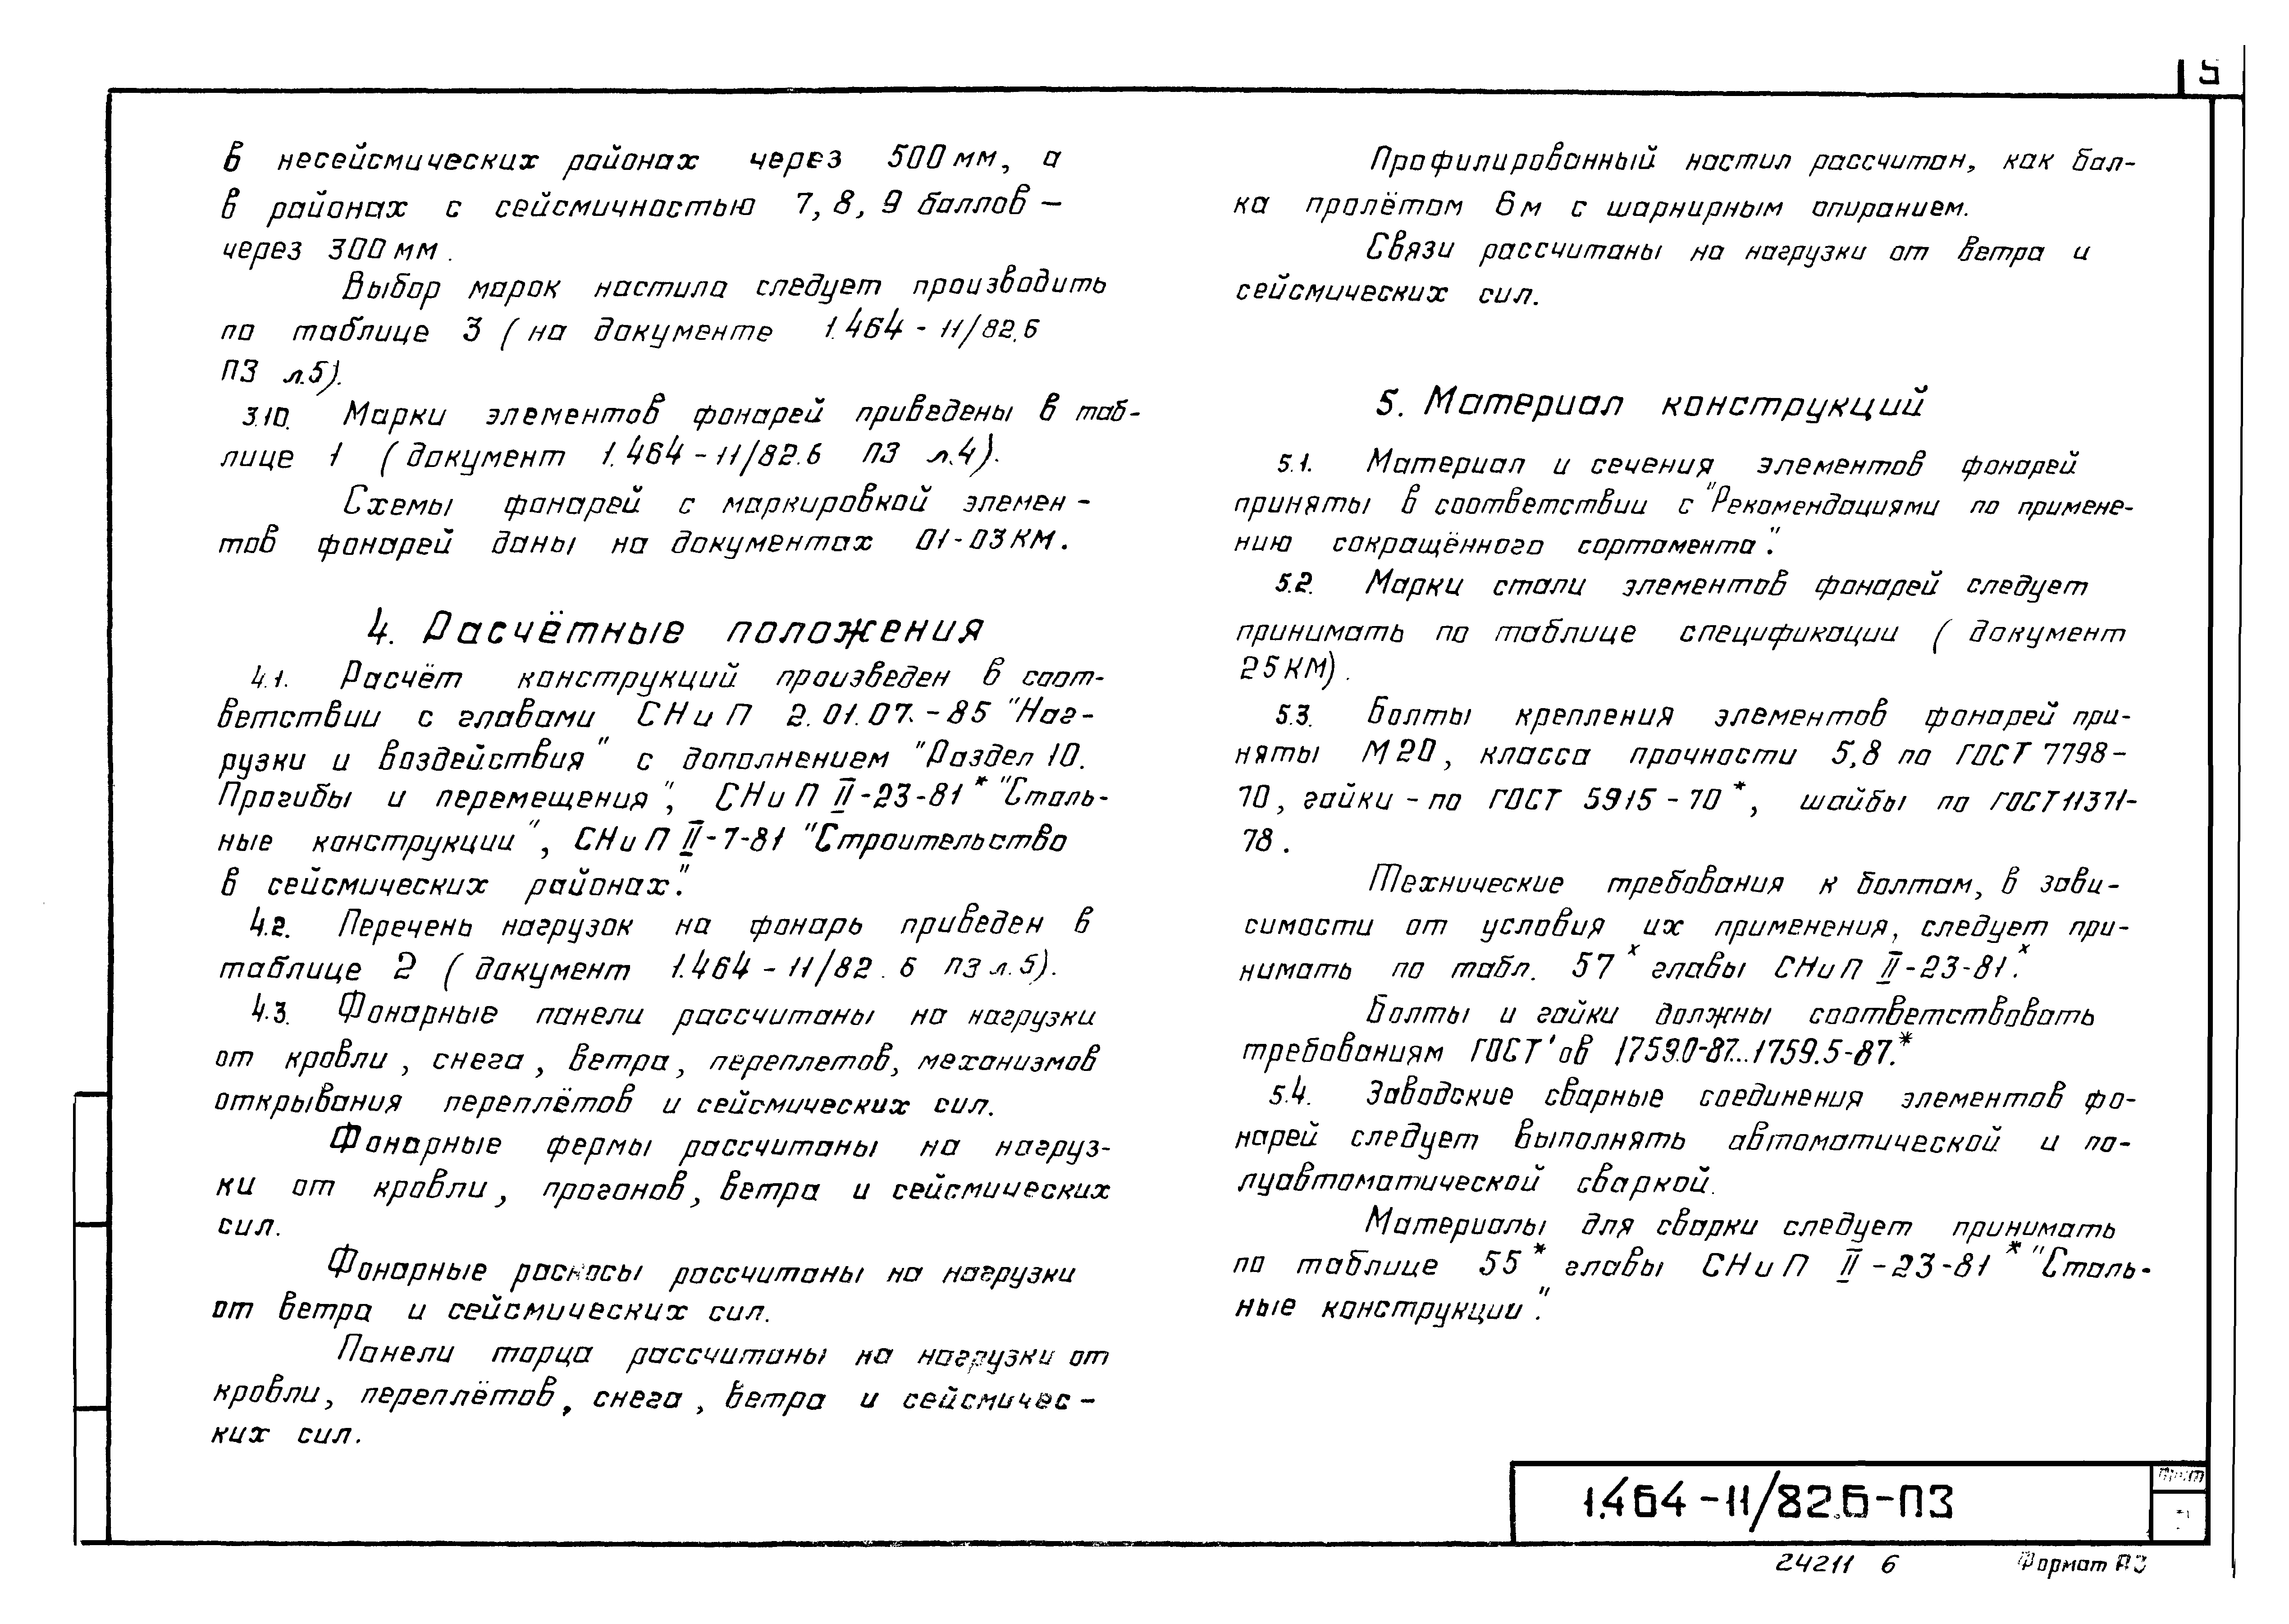 5
в несейсмических районах через 500 мм, а
в районах с сейсмичностью 7, 8, 9 баллов –
через 300 мм.
Выбор марок настила следует производить
по таблице 3 (на документе 1.464-11/82.6
ПЗ л.5).
3.10. Марки элементов фонарей приведены в таб-
лице 1 (документ 1.464-11/82.6 ПЗ л.4).
Схемы фонарей с маркировкой элемен-
тов фонарей даны на документах 01-03КМ.
4. Расчётные положения
4.1. Расчёт конструкций произведен в соот-
ветствии с главами СНиП 2.01.07.-85 "Наг-
рузки и воздействия" с дополнением "Раздел 10.
Прогибы и перемещения", СНиП II-23-81* "Сталь-
ные конструкции", СНиП II-7-81 "Строительство
в сейсмических районах".
4.2. Перечень нагрузок на фонарь приведен в
таблице 2 (документ 1.464-11/82.6 ПЗ л.5).
4.3. Фонарные панели рассчитаны на нагрузки
от кровли, снега, ветра, переплетов, механизмов
открывания переплётов и сейсмических сил.
Фонарные фермы рассчитаны на нагруз-
ки от кровли, прогонов, ветра и сейсмических
сил.
Фонарные раскосы рассчитаны на нагрузки
от ветра и сейсмических сил.
Панели торца рассчитаны на нагрузки от
кровли, переплётов, снега, ветра и сейсмичес-
ких сил.
Профилированный настил рассчитан, как бал-
ка пролётом 6м с шарнирным опиранием.
Связи рассчитаны на нагрузки от ветра и
сейсмических сил.
5. Материал конструкций
5.1. Материал и сечения элементов фонарей
приняты в соответствии с "Рекомендациями по примене-
нию сокращённого сортамента".
5.2. Марки стали элементов фонарей следует
принимать по таблице спецификации (документ
25КМ).
5.3. Болты крепления элементов фонарей при-
няты М20, класса прочности 5,8 по ГОСТ 7798-
70, гайки - по ГОСТ 5915-70*, шайбы по ГОСТ 11371-
78.
Технические требования к болтам, в зави-
симости от условия их применения, следует при-
нимать по табл. 57ˣ главы СНиП II-23-81ˣ.
Болты и гайки должны соответствовать
требованиям ГОСТ'ов 1759.0-87...1759.5-87.*
5.4. Заводские сварные соединения элементов фо-
нарей следует выполнять автоматической и по-
луавтоматической сваркой.
Материалы для сварки следует принимать
по таблице 55* главы СНиП II-23-81* "Сталь-
ные конструкции".
1.464-11/82.6-ПЗ
Лист
24211 6
Формат А3